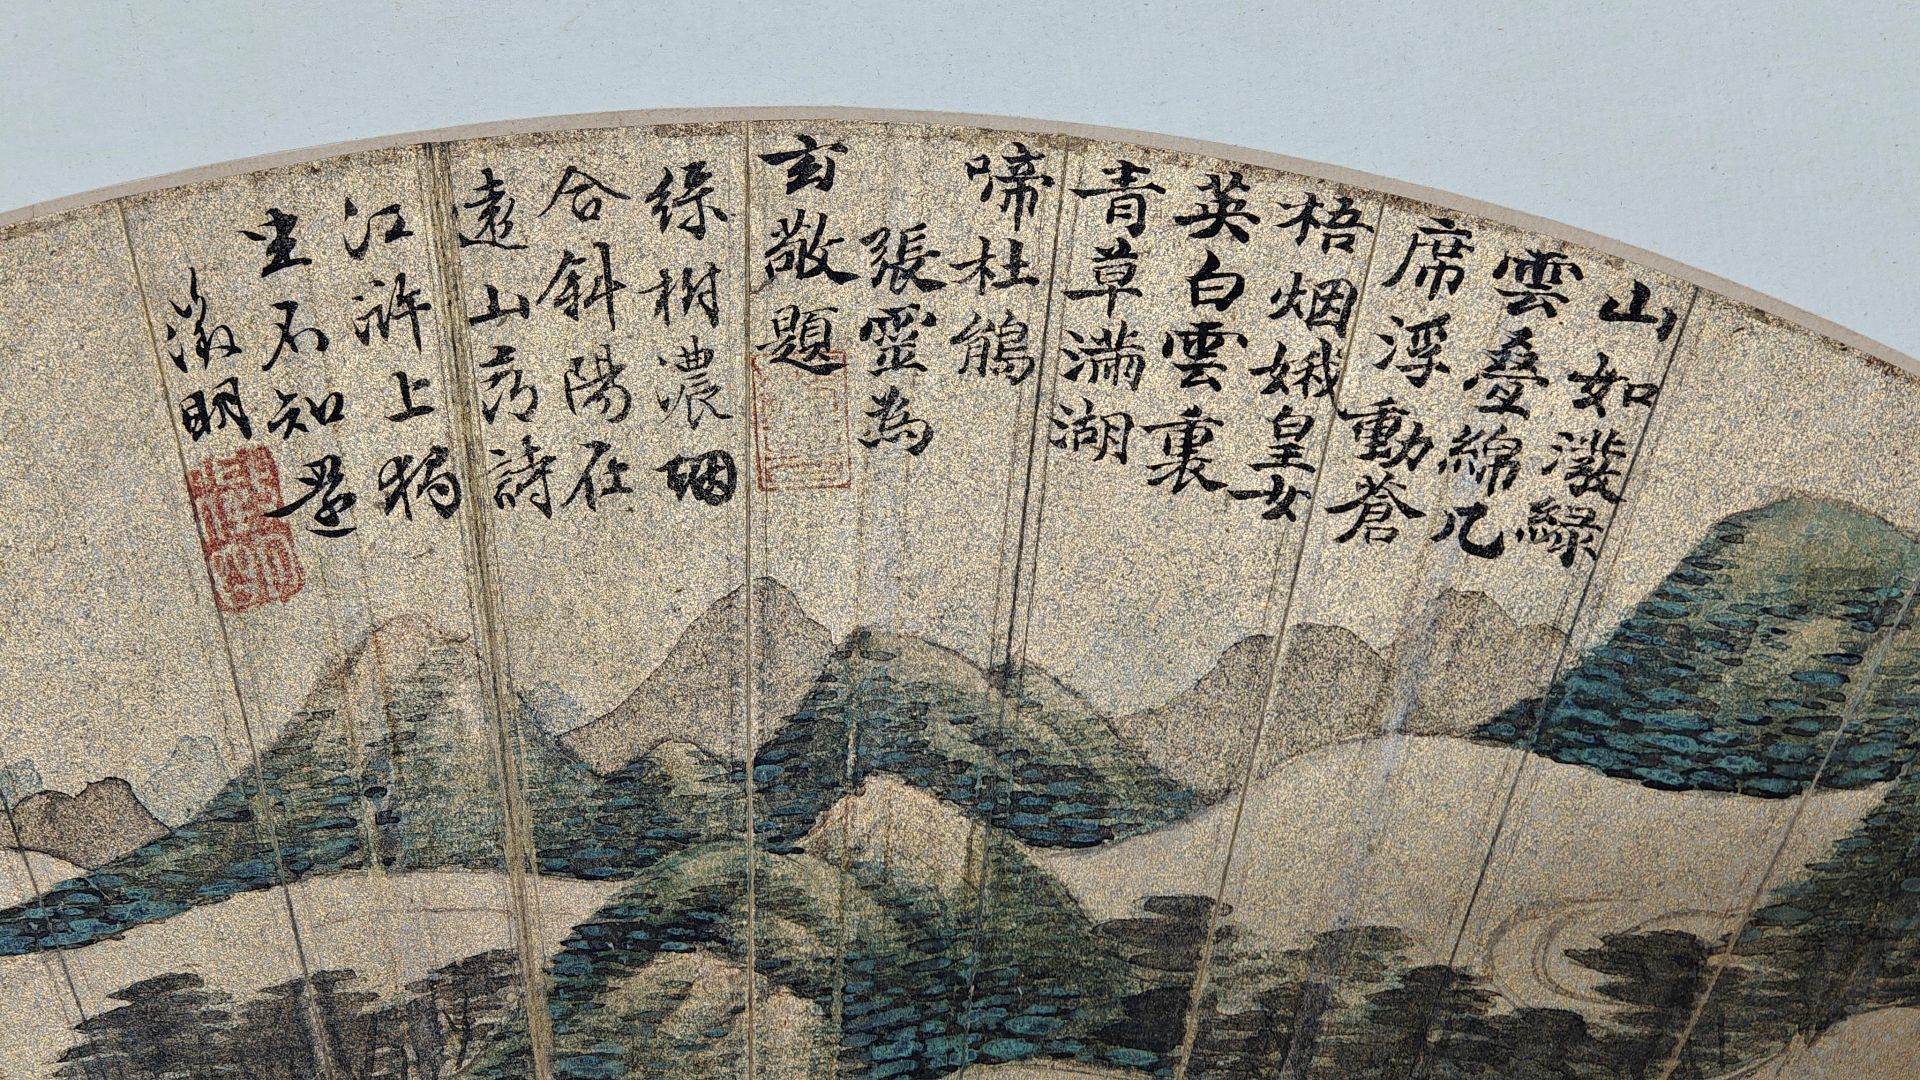 山如潑緑
雲疊綿几
席浮動蒼
梧烟娥皇女
英白雲裏
青草滿湖
啼杜鵑
張靈為
玄敬題
緑樹濃烟
合斜陽在
遠山詩
江滸上獨
坐不知還
徵明